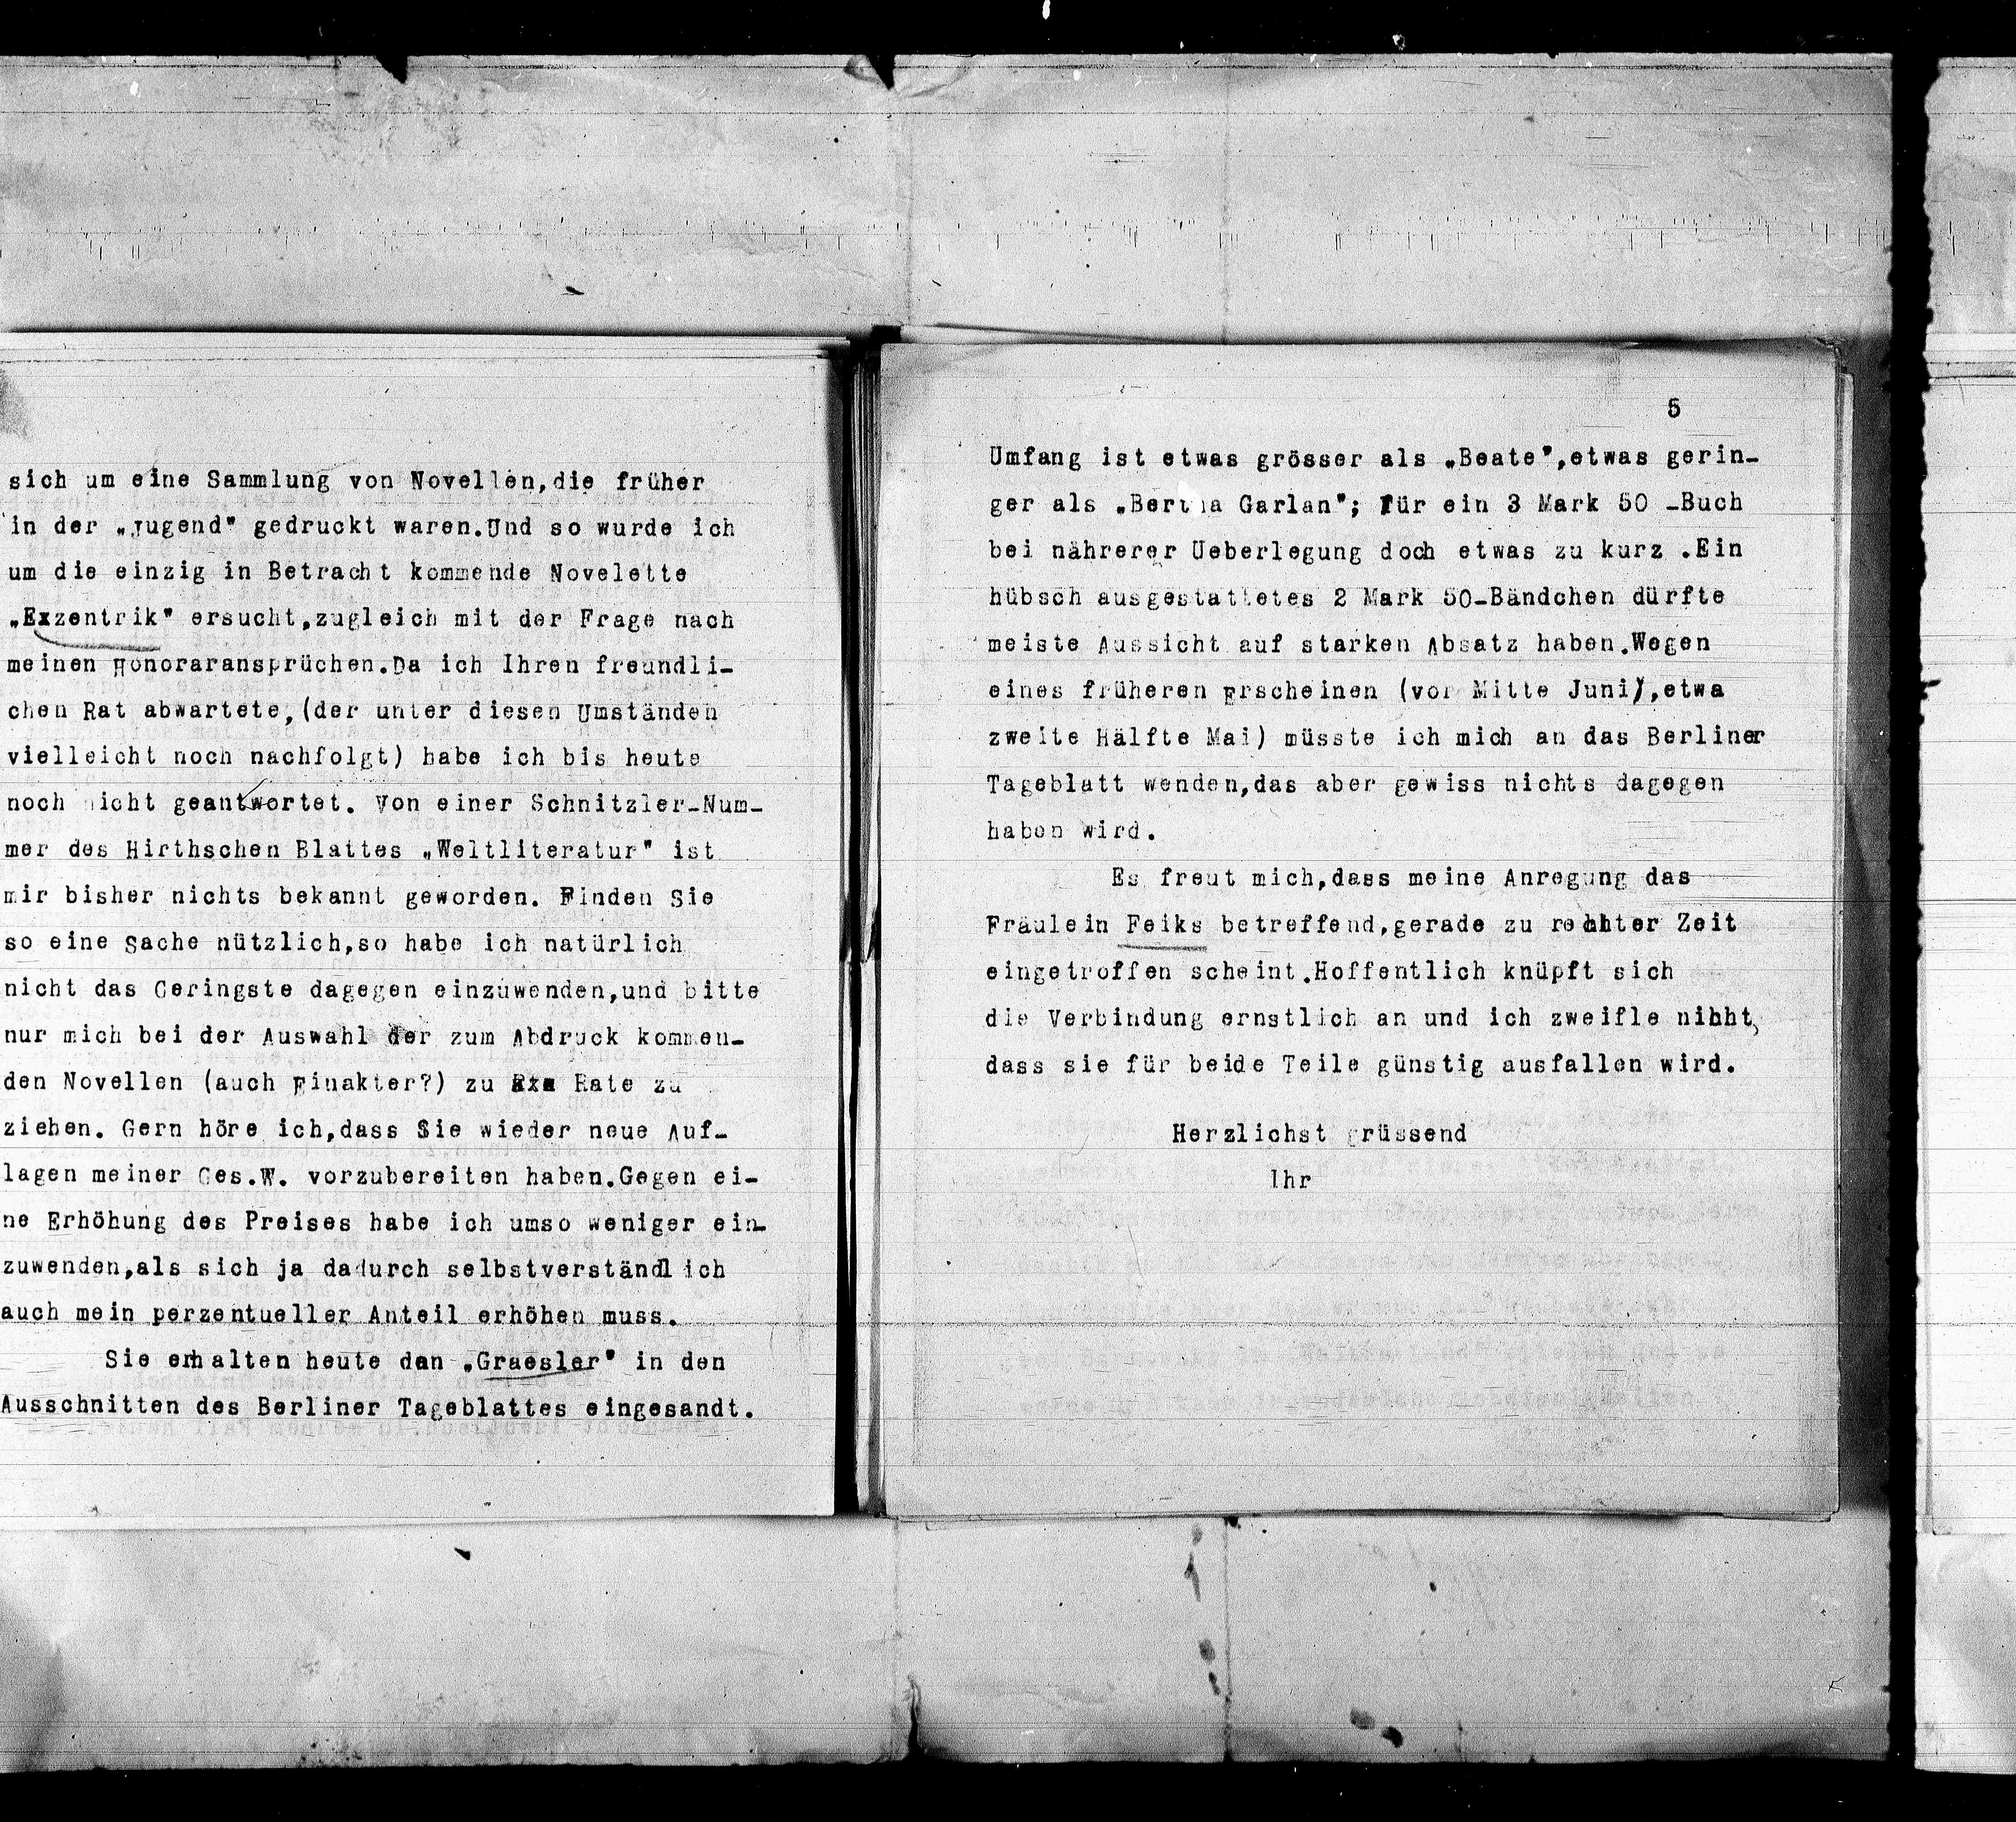 sich um eine Sammlung von Novellen,die früher
in der „Jugend" gedruckt waren.Und so wurde ich
um die einzig in Betracht kommende Novelette
„Exzentrik" ersucht,zugleich mit der Frage nach
meinen Honoraransprüchen.Da ich Ihren freundli-
chen Rat abwartete,(der unter diesen Umständen
vielleicht noch nachfolgt) habe ich bis heute
noch nicht geantwortet. Von einer Schnitzler-Num-
mer des Hirthschen Blattes „Weltliteratur" ist
mir bisher nichts bekannt geworden. Finden Sie
so eine Sache nützlich,so habe ich natürlich
nicht das Geringste dagegen einzuwenden,und bitte
nur mich bei der Auswahl der zum Abdruck kommen-
den Novellen (auch Einakter?) zu Rate zu
ziehen. Gern höre ich,dass Sie wieder neue Auf-
lagen meiner Ges.W. vorzubereiten haben.Gegen ei-
ne Erhöhung des Preises habe ich umso weniger ein-
zuwenden,als sich ja dadurch selbstverständlich
auch mein perzentueller Anteil erhöhen muss.
Sie erhalten heute den „Graesler" in den
Ausschnitten des Berliner Tageblattes eingesandt.
5
Umfang ist etwas grösser als „Beate",etwas gerin-
ger als „Bertha Garlan"; für ein 3 Mark 50 -Buch
bei nährerer Ueberlegung doch etwas zu kurz .Ein
hübsch ausgestattetes 2 Mark 50-Bändchen dürfte
meiste Aussicht auf starken Absatz haben.Wegen
eines früheren Erscheinen (vor Mitte Juni),etwa
zweite Hälfte Mai) müsste ich mich an das Berliner
Tageblatt wenden,das aber gewiss nichts dagegen
haben wird.
Es freut mich,dass meine Anregung das
Fräulein Feiks betreffend,gerade zu rechter Zeit
eingetroffen scheint.Hoffentlich knüpft sich
die Verbindung ernstlich an und ich zweifle nihht,
dass sie für beide Teile günstig ausfallen wird.
Herzlichst grüssend
Ihr